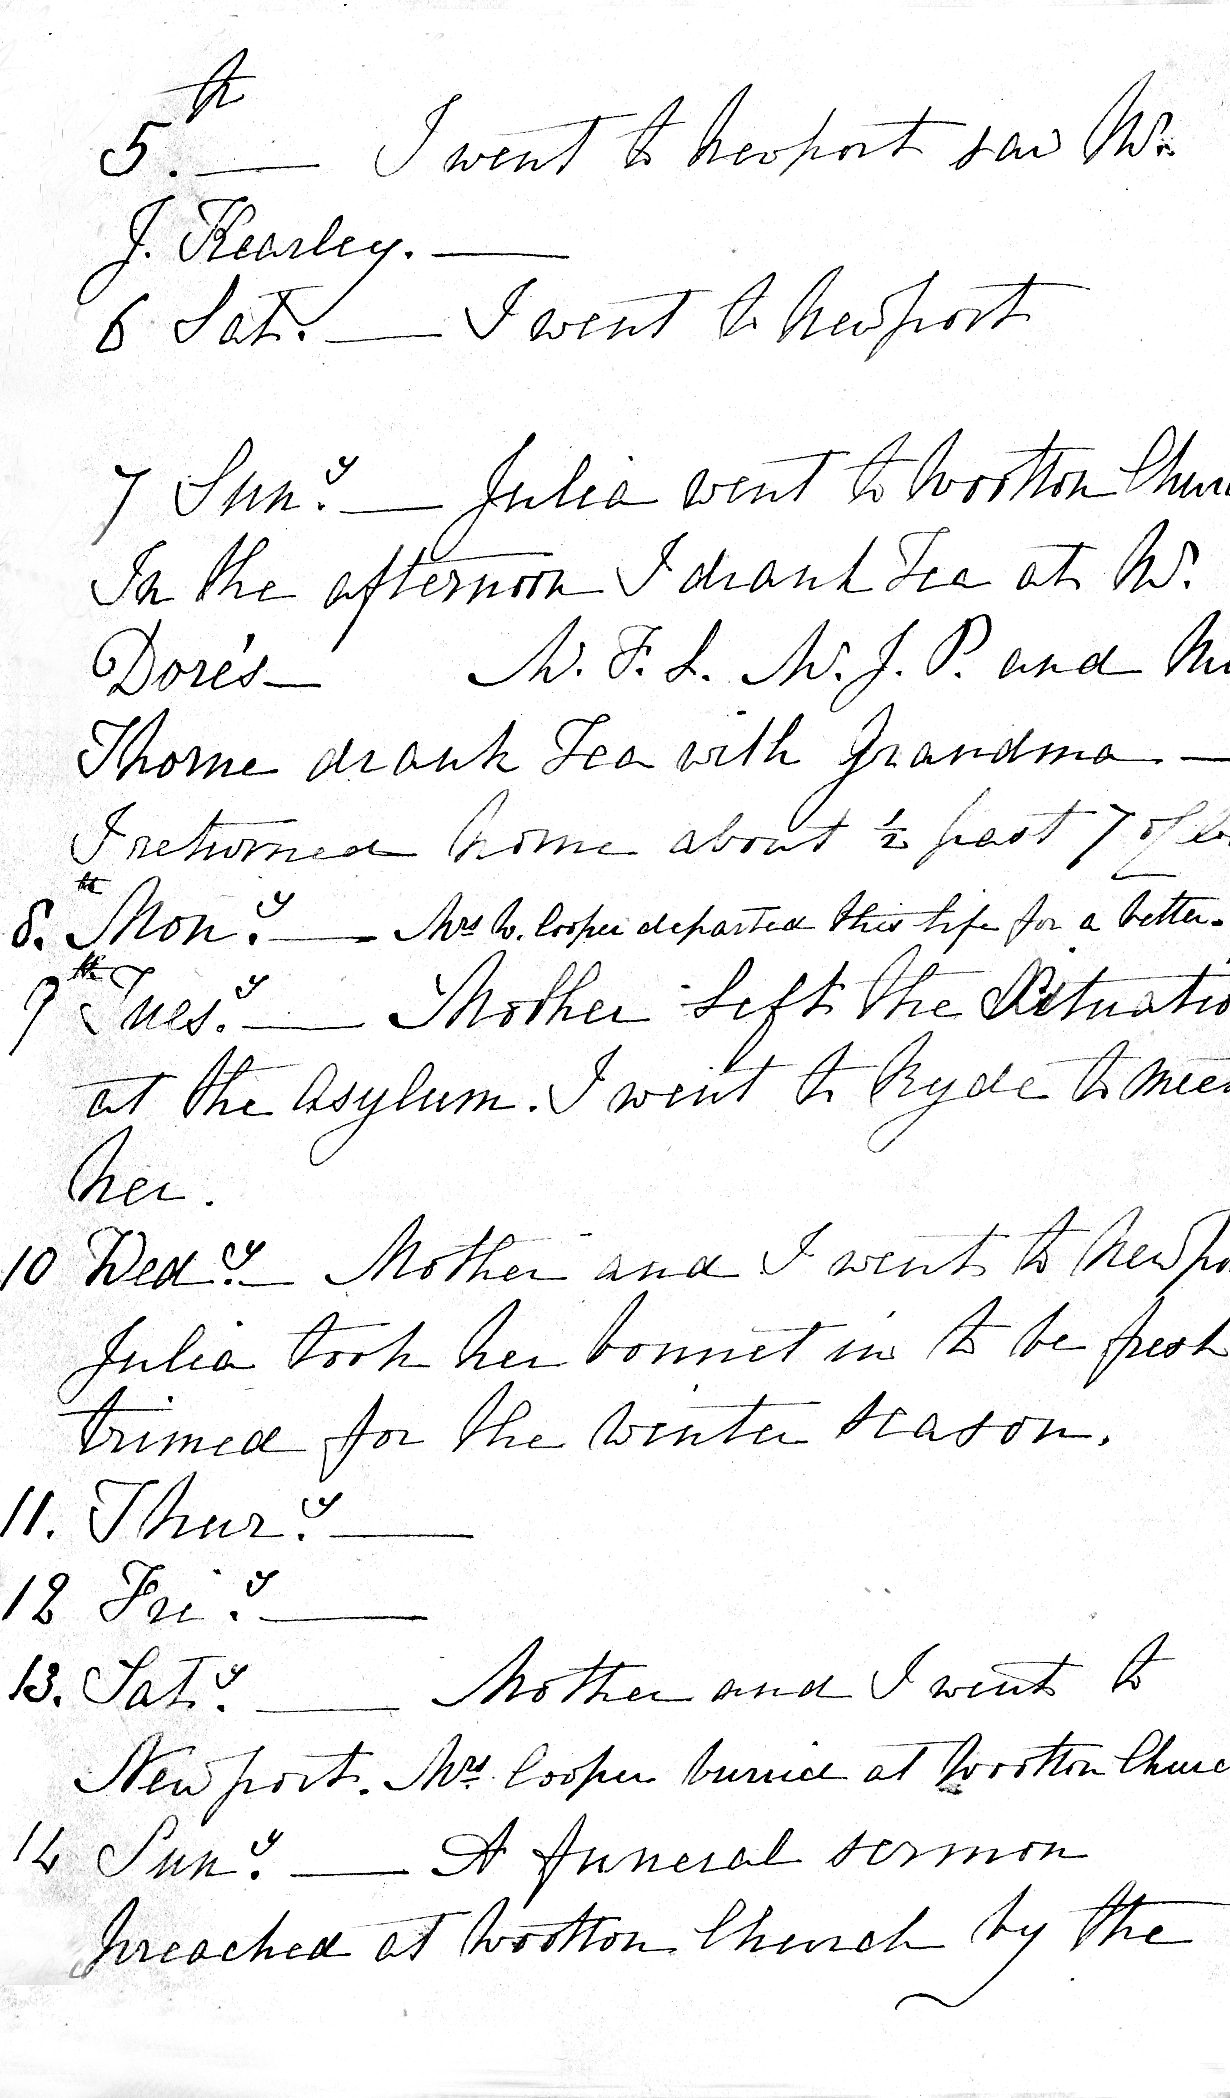 5th. — I went to Newport saw Mr.
J. Kearley. —
6 Sat. — I went to Newport
7 Sun.y — Julia went to Wootton Churc
In the afternoon I drank Tea at Mr.
Dore's — Mr. F. L. Mr. J. P. and
Thorne drank Tea with Grandma —
I returned home about ½ past 7
8.th Mon.y — Mrs W. Cooper departed this life for a better.
9th Tues.y — Mother Left the Situatio
at the Asylum. I went to Ryde to meet
her.
10 Wed.y — Mother and I went to Newpo
Julia took her bonnet in to be fresh
trimed for the Winter season.
11. Thur.y —
12 Fri.y —
13. Sat.y — Mother and I went to
Newport. Mrs. Cooper buried at Wootton Churc
14 Sun.y — A funeral sermon
preached at Wootton Church by the